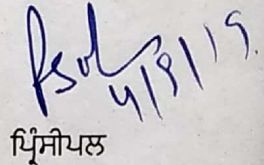 4/9/19.
ਪ੍ਰਿੰਸੀਪਲ